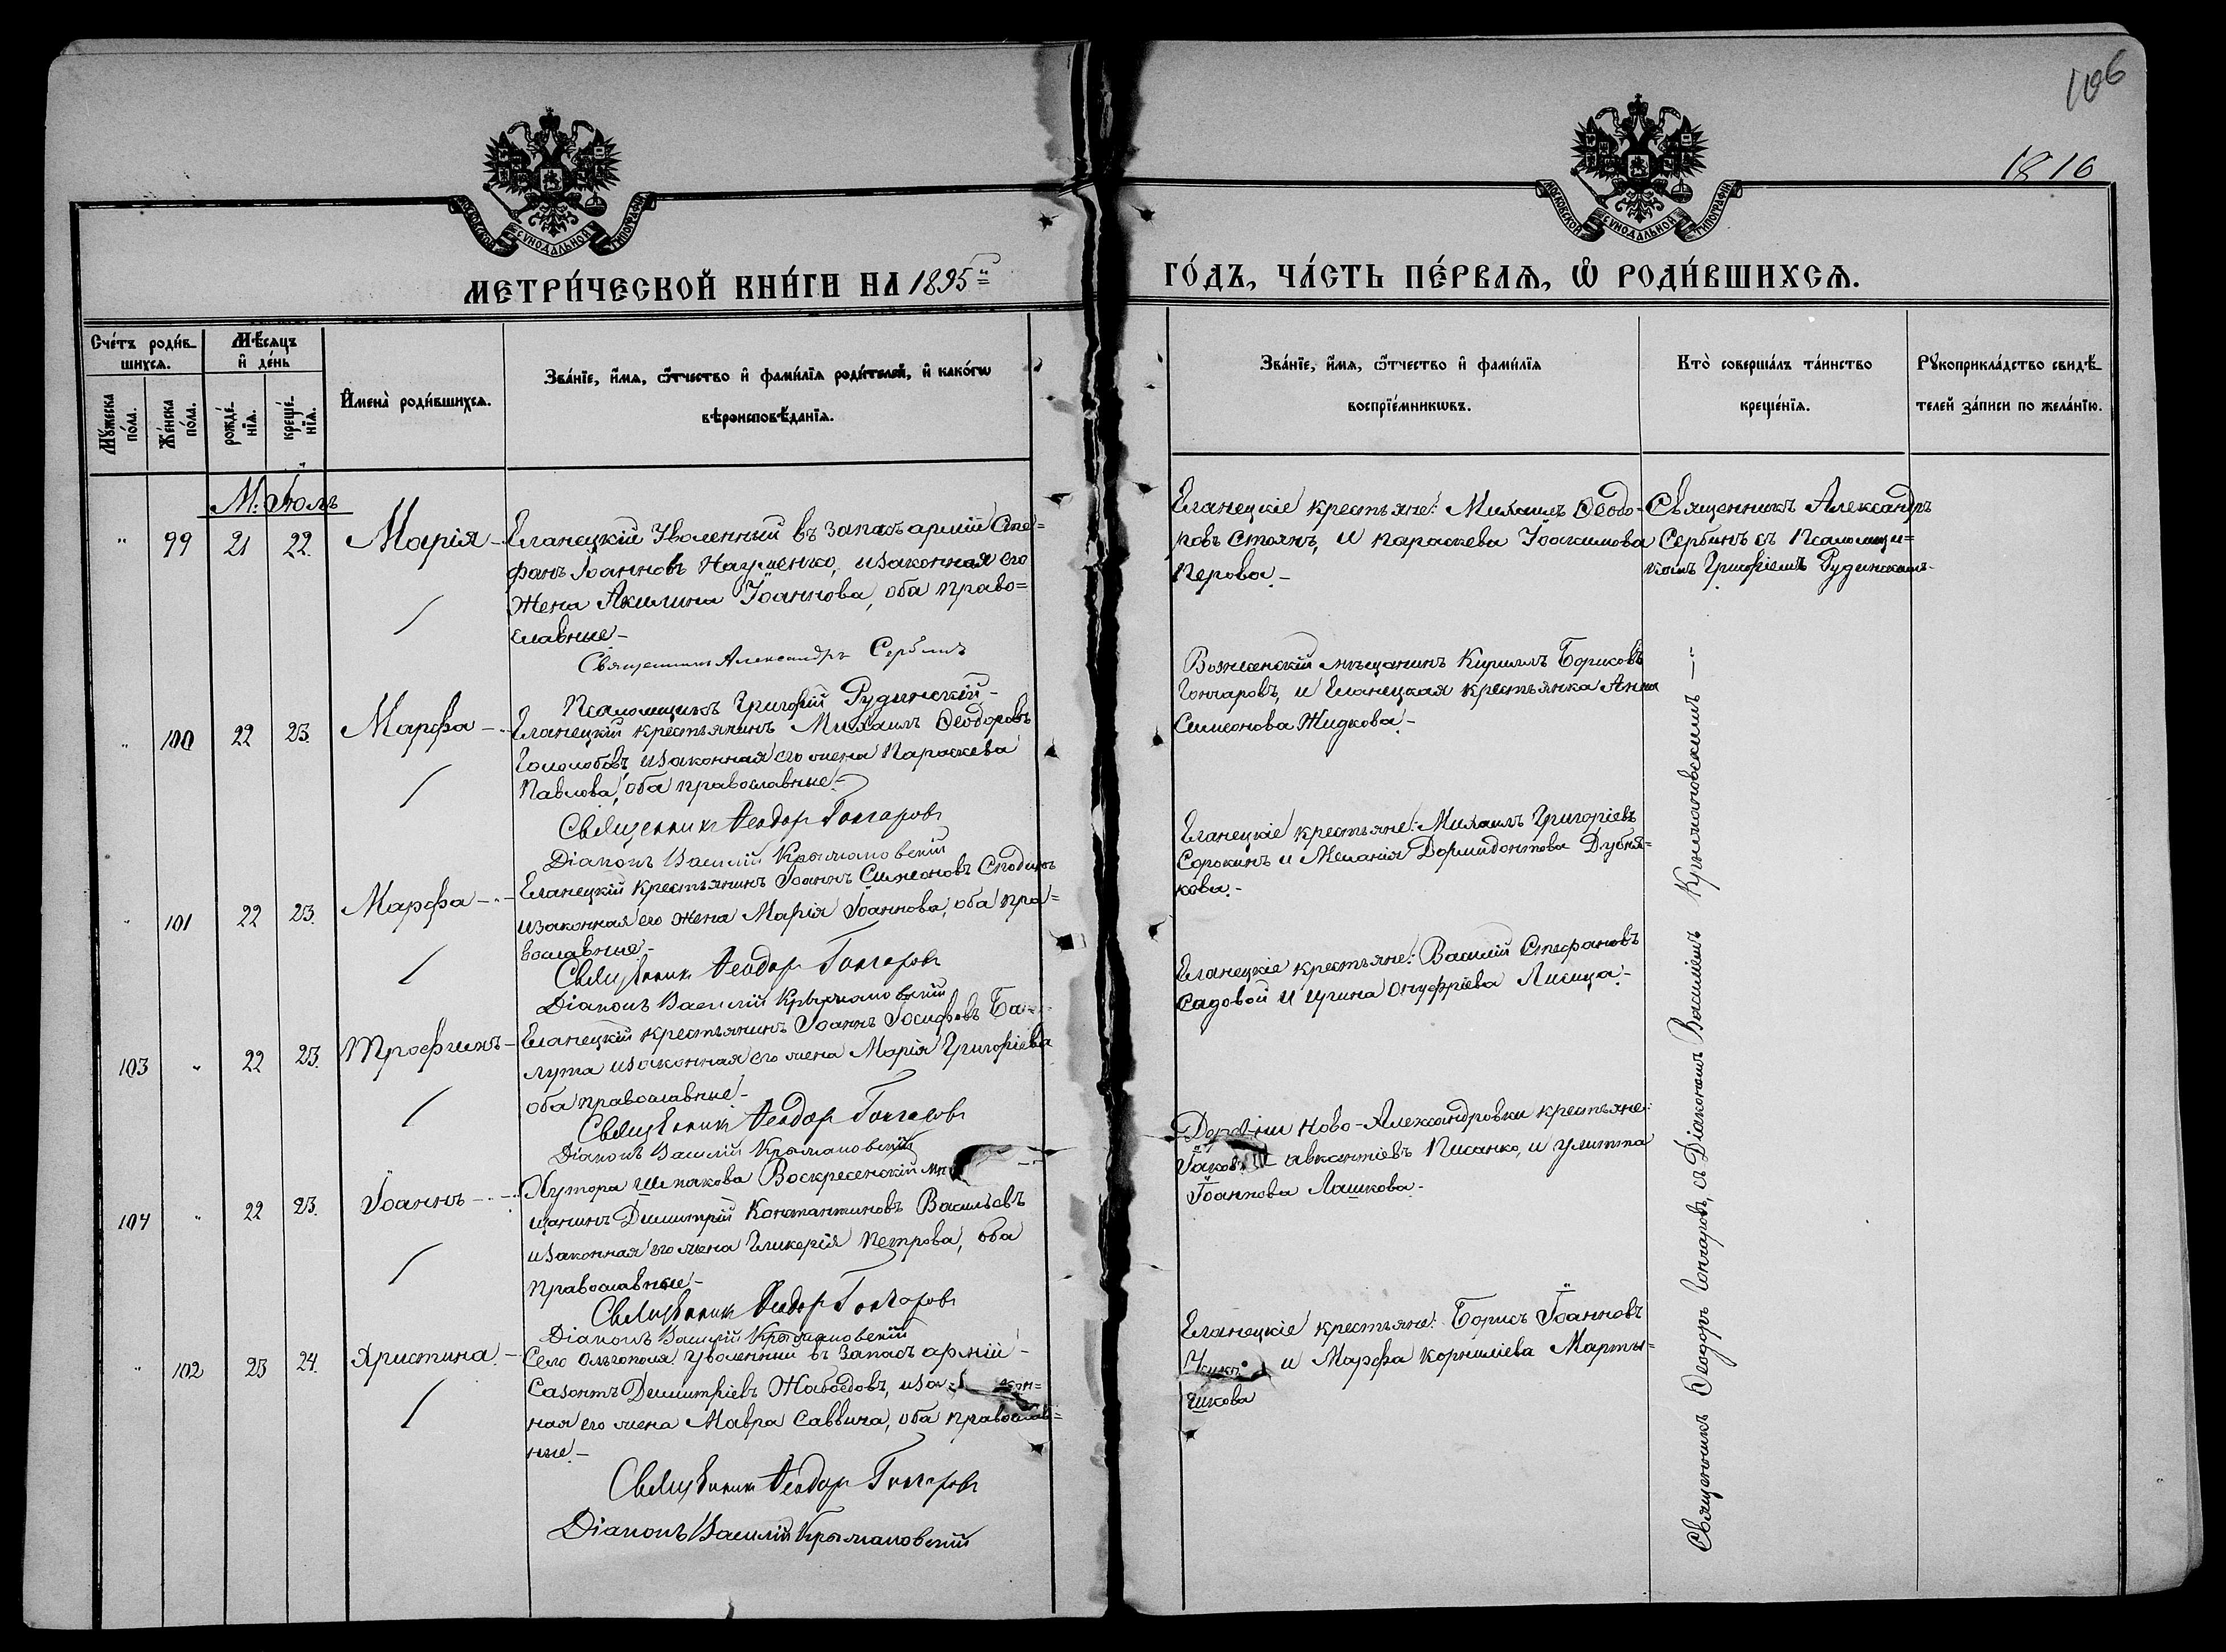 106
1816
МОСКОВСКОЙ СѴНОДАЛЬНОЙ ТИПОГРАФІИ
МОСКОВСКОЙ СѴНОДАЛЬНОЙ ТИПОГРАФІИ
МЕТРИ́ЧЕСКОЙ КНИ́ГИ НА 1895й
ГО́ДЪ, ЧА́СТЬ ПЕ́РВАѦ, Ѡ РОДИ́ВШИХСѦ.
Сче́тъ роди́в-
шихсѧ.
Мꙋ́жеска по́ла.
Же́нска по́ла.
Мѣ́сѧцъ
и де́нь
рожде́-
нїѧ.
креще́-
нїѧ.
И҆мена̀ роди́вшихсѧ.
Зва́нїе, и҆́мѧ, ѻ҆́тчество и҆ фами́лїѧ роди́телей, и҆ како́гѡ
вѣроисповѣ́данїѧ.
Зва́нїе, и҆́мѧ, ѻ҆́тчество и҆ фами́лїѧ
воспрїе́мникѡвъ.
Кто̀ соверша́лъ та́инство
креще́нїѧ.
Рꙋкоприкла́дство свидѣ́-
телей за́писи по жела́нїю.
М. Іюль
" 99 21 22. Марія -
Еланецкій Уволенный въ запасъ арміи Сте=
фанъ Іоанновъ Науменко, и законная его
жена Акилина Іоаннова, оба право=
славные -
Священникъ Александръ Сербинъ
Псаломщикъ Григорій Рудинскій -
Еланецкіе крестьяне: Михаилъ Ѳеодо-
ровъ Стоянъ, и Параскева Іоакимова
Перова -
Священникъ Александръ
Сербинъ съ Псаломщи=
комъ Григоріемъ Рудинскимъ -
" 100 22 23. Марфа -
Еланецкій крестьянинъ Михаилъ Ѳеодоровъ
Гололобовъ, и законная его жена Параскева
Павлова, оба православные -
Священникъ Ѳеодоръ Гончаровъ
Діаконъ Василій Крыжановскій
Вознесенскій мѣщанинъ Кириллъ Борисовъ
Гончаровъ, и Еланецкая крестьянка Анна
Симеонова Жидкова -
" 101 22 23. Марфа -
Еланецкій крестьянинъ Іоаннъ Симеоновъ Сподинъ
и законная его жена Марія Іоаннова, оба пра=
вославные -
Священникъ Ѳеодоръ Гончаровъ
Діаконъ Василій Крыжановскій
Еланецкіе крестьяне: Михаилъ Григоріевъ
Сорокинъ и Меланія Дормидонтова Дубня=
кова -
103 " 22 23. Трофимъ -
Еланецкій крестьянинъ Іоаннъ Іосифовъ Ба-
лута и законная его жена Марія Григоріева
оба православные -
Священникъ Ѳеодоръ Гончаровъ
Діаконъ Василій Крыжановскій
Еланецкіе крестьяне: Василій Стефановъ
Садовой и Ирина Онуфріева Лисица -
104 " 22 23. Іоаннъ -
Хутора Шпакова Воскресенскій мѣ
щанинъ Димитрій Константиновъ Васильевъ
и законная его жена Гликерія Петрова, оба
православные -
Священникъ Ѳеодоръ Гончаровъ
Діаконъ Василій Крыжановскій
Деревни Ново-Александровки крестьяне:
Іаковъ Авксентіевъ Писанко, и Улитта
Іоаннова Лашкова -
" 102 23 24. Христина -
Село Ольгополя Уволенный въ запасъ арміи -
Сазонтъ Димитріевъ Жабоедовъ, и закон=
ная его жена Мавра Саввича, оба православ=
ные -
Священникъ Ѳеодоръ Гончаровъ
Діаконъ Василій Крыжановскій
Еланецкіе крестьяне: Борисъ Іоанновъ
и Марфа Корнилиева Марты=
шкова
Священникъ Ѳеодоръ Гончаровъ, съ Діакономъ Василіемъ Крыжановскимъ -